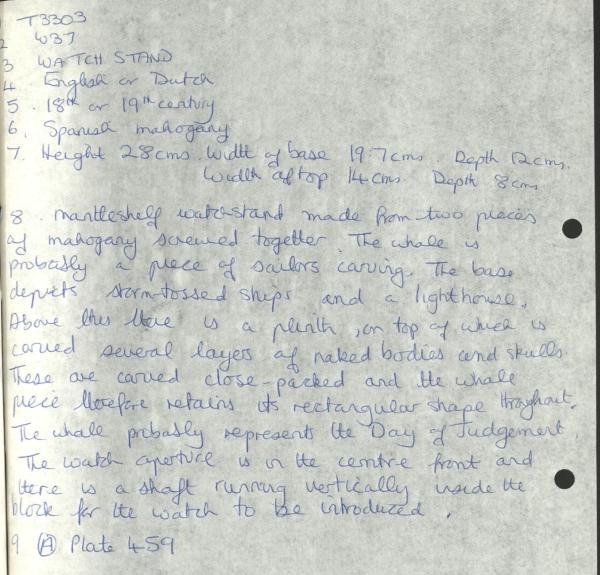 T3303
2 W37
3 WATCH STAND
4 English or Dutch
5. 18th or 19th century
6. Spanish mahogany
7. Height 28cms. Width of base 19.7cms. Depth 12cms.
Width of top 14cms. Depth 8cms
8. Mantleshelf watchstand made from two pieces
of mahogany screwed together. The whole is
probably a piece of sailors carving. The base
depicts storm-tossed ships and a lighthouse.
Above this there is a plinth, on top of which is
carved several layers of naked bodies and skulls.
These are carved close-packed and the whole
piece therefore retains its rectangular shape throughout.
The whole probably represents the Day of Judgement.
The watch aperture is in the centre front and
there is a shaft running vertically inside the
block for the watch to be introduced.
9 (A) Plate 459